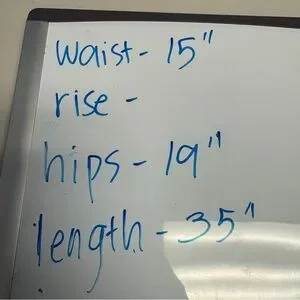 waist - 15"
rise -
hips - 19"
length - 35"